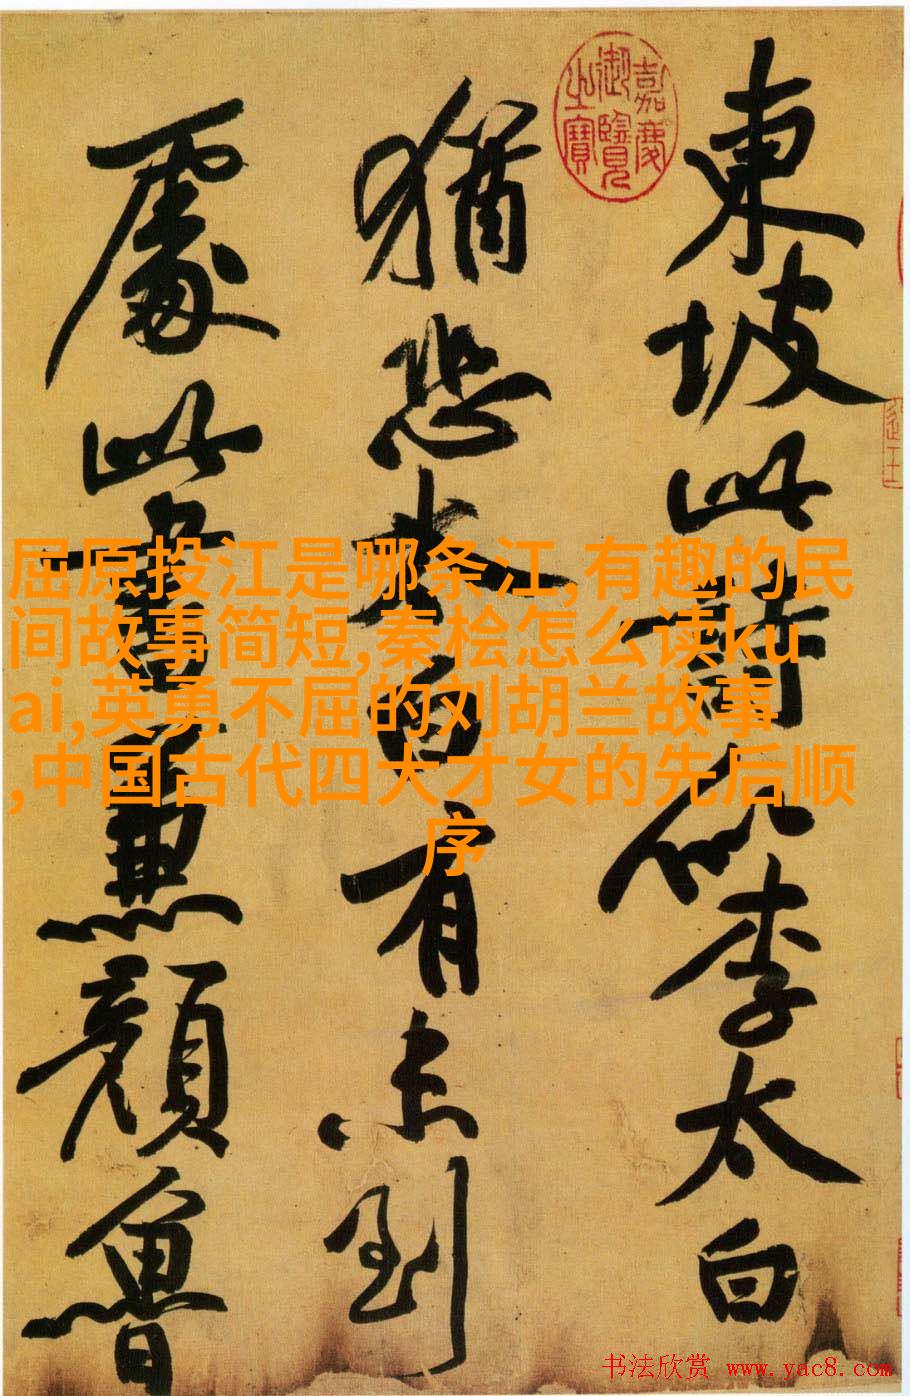 東坡此詩似李太白
猶恐太白有未到
處此書兼顏魯
嘉慶
御覽
之寶
屈原投江是哪条江,有趣的民
间故事简短,秦桧怎么读ku
ai,英勇不屈的刘胡兰故事
,中国古代四大才女的先后顺
序
书法欣赏 www.yac8.com